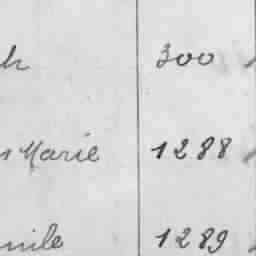 h 300
s Marie 1288
mile 1289